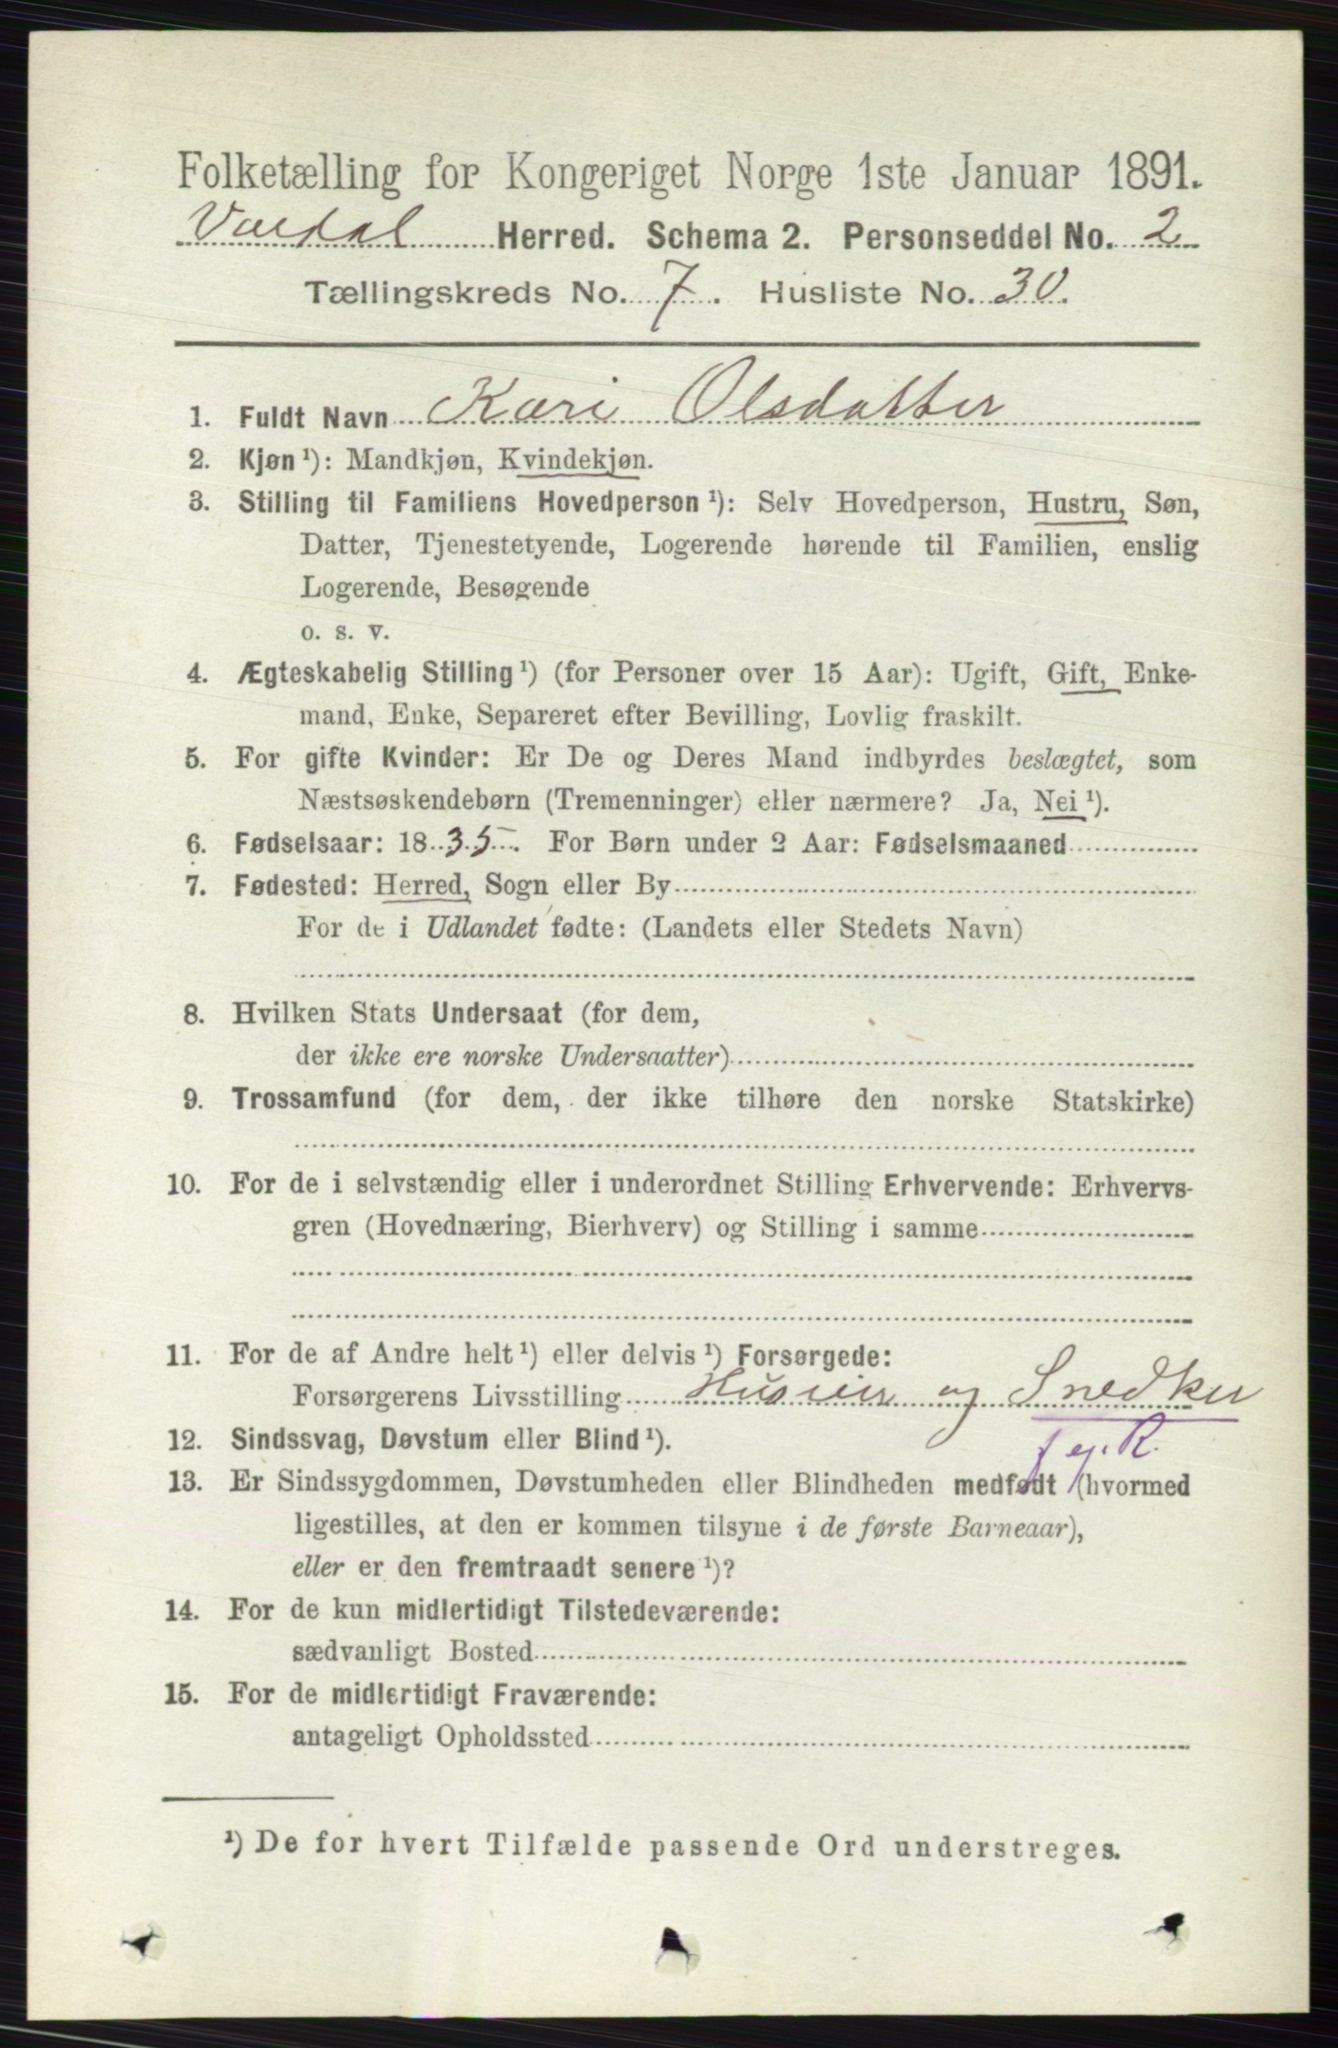 Folketælling for Kongeriget Norge 1ste Januar 1891.
Vardal Herred. Schema 2. Personseddel No. 2
Tællingskreds No. 7. Husliste No. 30.
1. Fuldt Navn Kari Olsdatter
2. Kjøn ¹): Mandkjøn, Kvindekjøn.
3. Stilling til Familiens Hovedperson ¹): Selv Hovedperson, Hustru, Søn,
Datter, Tjenestetyende, Logerende hørende til Familien, enslig
Logerende, Besøgende
o. s. v.
4. Ægteskabelig Stilling ¹) (for Personer over 15 Aar): Ugift, Gift, Enke-
mand, Enke, Separeret efter Bevilling, Lovlig fraskilt.
5. For gifte Kvinder: Er De og Deres Mand indbyrdes beslægtet, som
Næstsøskendebørn (Tremenninger) eller nærmere? Ja, Nei ¹).
6. Fødselsaar: 1835. For Børn under 2 Aar: Fødselsmaaned
7. Fødested: Herred, Sogn eller By
For de i Udlandet fødte: (Landets eller Stedets Navn)
8. Hvilken Stats Undersaat (for dem,
der ikke ere norske Undersaatter)
9. Trossamfund (for dem, der ikke tilhøre den norske Statskirke)
10. For de i selvstændig eller i underordnet Stilling Erhvervende: Erhvervs-
gren (Hovednæring, Bierhverv) og Stilling i samme
11. For de af Andre helt ¹) eller delvis ¹) Forsørgede:
Forsørgerens Livsstilling Huseier og Snedker
12. Sindssvag, Døvstum eller Blind ¹).
13. Er Sindssygdommen, Døvstumheden eller Blindheden medfødt (hvormed
ligestilles, at den er kommen tilsyne i de første Barneaar),
eller er den fremtraadt senere ¹)?
14. For de kun midlertidigt Tilstedeværende:
sædvanligt Bosted
15. For de midlertidigt Fraværende:
antageligt Opholdssted
¹) De for hvert Tilfælde passende Ord understreges.